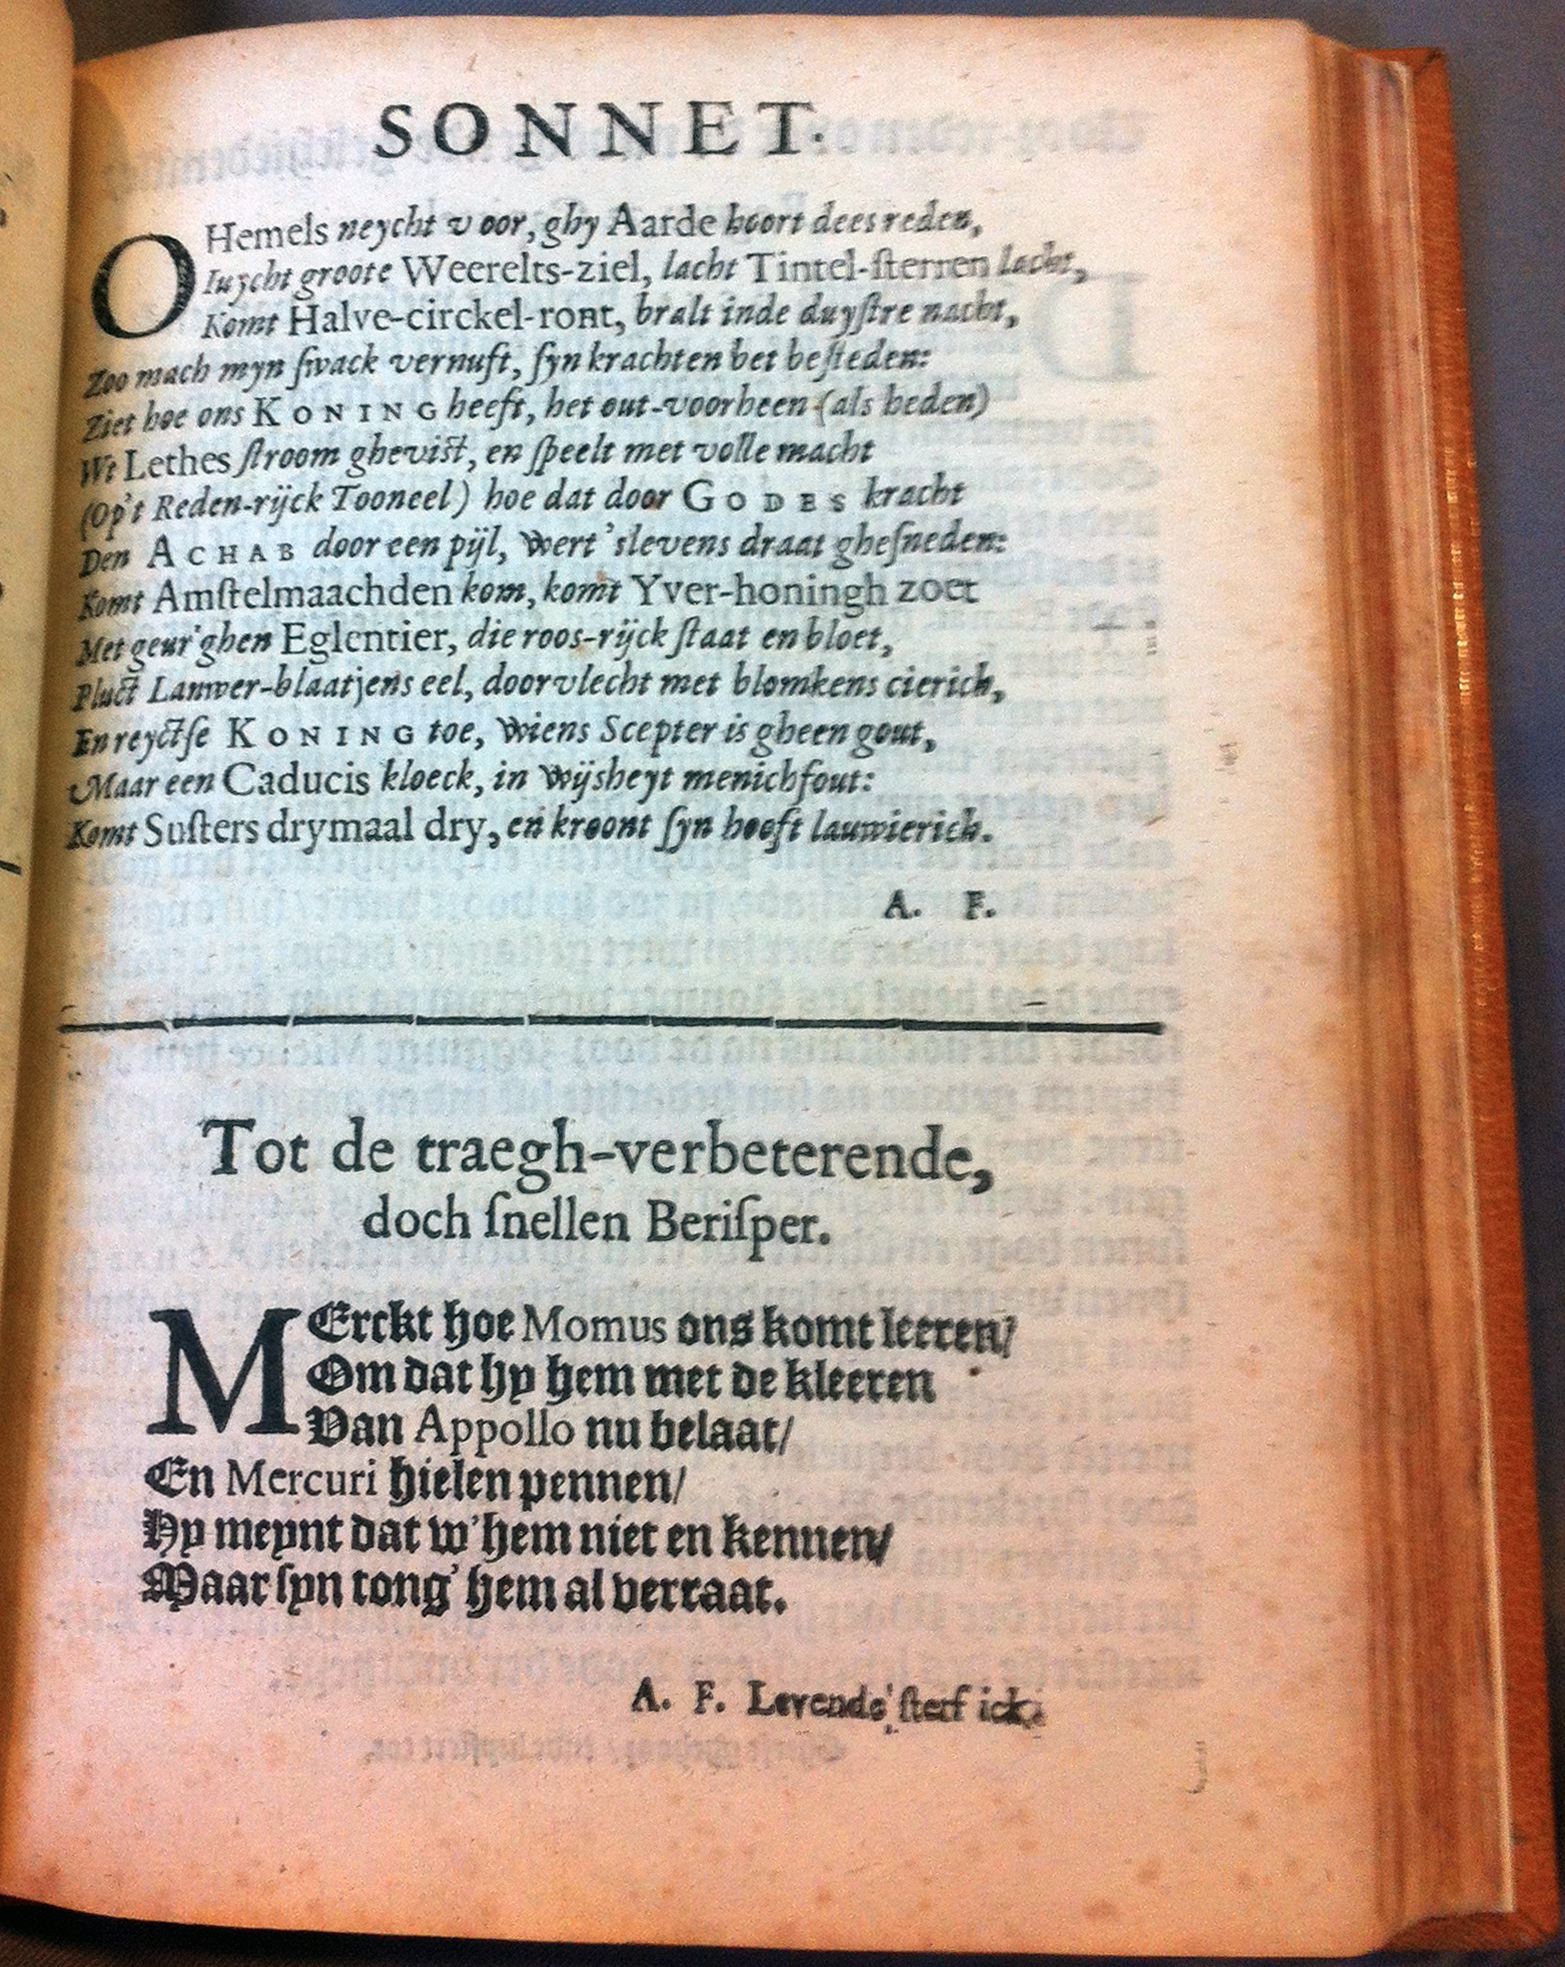 SONNET.
O Hemels neycht voor, ghy Aarde hoort dees reden,
Iuycht groote Weerelts-ziel, lacht Tintel-ſterren lacht,
Komt Halve-circkel-ront, bralt inde duyſtre nacht,
Zoo mach myn ſwack vernuft, ſyn krachten bet beſteden:
Ziet hoe ons KONING heeft, het out-voorheen (als heden)
Wt Lethes ſtroom ghevist, en ſpeelt met volle macht
(Op't Reden-rijck Tooneel) hoe dat door GODES kracht
Den ACHAB door een pijl, wert 'slevens draat gheſneden:
Komt Amſtelmaachden kom, komt Yver-honingh zoet
Met geur'ghen Eglentier, die roos-rijck ſtaat en bloet,
Pluct Lauwer-blaatjens eel, doorvlecht met blomkens cierich,
En reyctſe KONING toe, wiens Scepter is gheen gout,
Maar een Caducis kloeck, in wijsheyt menichfout:
Komt Suſters drymaal dry, en kroont ſyn hooft lauwierich.
A. F.
Tot de traegh-verbeterende,
doch ſnellen Beriſper.
MErckt hoe Momus ons komt leeren/
Om dat hy hem met de kleeren
Van Appollo nu belaat/
En Mercuri hielen pennen/
Hy meynt dat w'hem niet en kennen/
Maar ſyn tong' hem al verraat.
A. F. Levende ſterf ick.